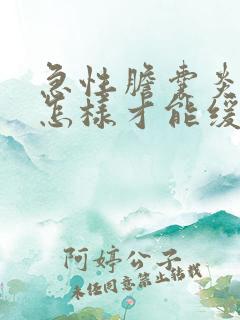 急性膽囊炎
怎樣才能緩
阿婷公子
未经同意禁止转载